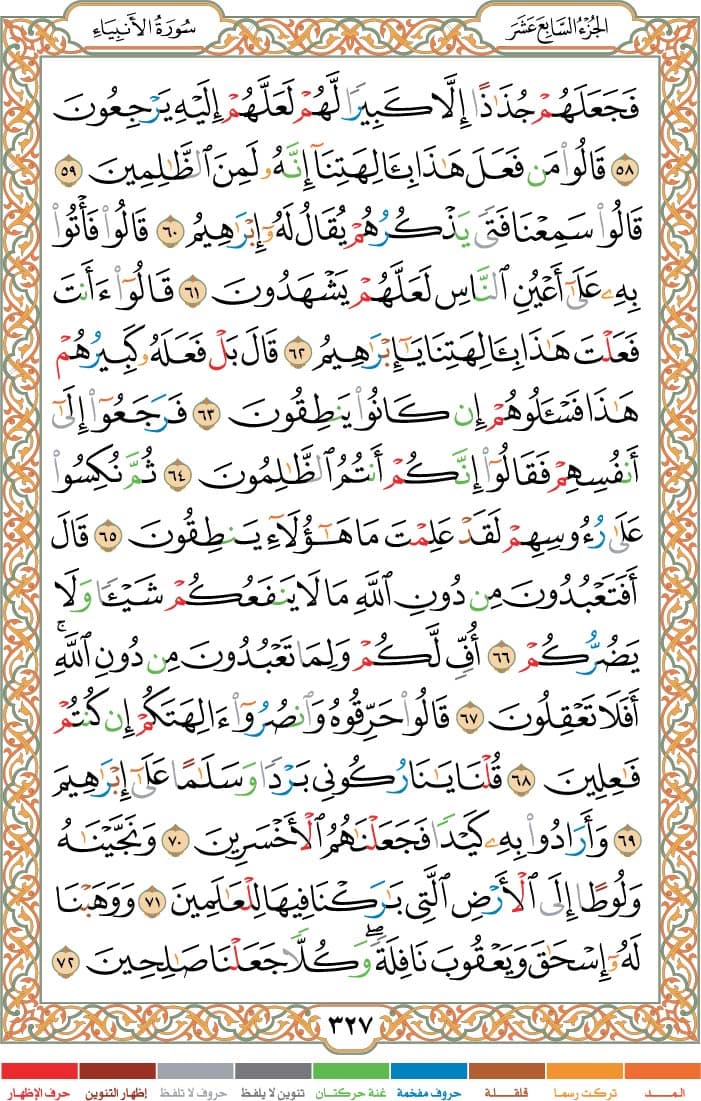 الجزء السابع عشر
سورة الأنبياء
فَجَعَلَهُمْ جُذَٰذًا إِلَّا كَبِيرًا لَّهُمْ لَعَلَّهُمْ إِلَيْهِ يَرْجِعُونَ
٥٨ قَالُوا۟ مَن فَعَلَ هَٰذَا بِـَٔالِهَتِنَآ إِنَّهُۥ لَمِنَ ٱلظَّٰلِمِينَ ٥٩
قَالُوا۟ سَمِعْنَا فَتًى يَذْكُرُهُمْ يُقَالُ لَهُۥٓ إِبْرَٰهِيمُ ٦٠ قَالُوا۟ فَأْتُوا۟
بِهِۦ عَلَىٰٓ أَعْيُنِ ٱلنَّاسِ لَعَلَّهُمْ يَشْهَدُونَ ٦١ قَالُوٓا۟ ءَأَنتَ
فَعَلْتَ هَٰذَا بِـَٔالِهَتِنَا يَٰٓإِبْرَٰهِيمُ ٦٢ قَالَ بَلْ فَعَلَهُۥ كَبِيرُهُمْ
هَٰذَا فَسْـَٔلُوهُمْ إِن كَانُوا۟ يَنطِقُونَ ٦٣ فَرَجَعُوٓا۟ إِلَىٰٓ
أَنفُسِهِمْ فَقَالُوٓا۟ إِنَّكُمْ أَنتُمُ ٱلظَّٰلِمُونَ ٦٤ ثُمَّ نُكِسُوا۟
عَلَىٰ رُءُوسِهِمْ لَقَدْ عَلِمْتَ مَا هَٰٓؤُلَآءِ يَنطِقُونَ ٦٥ قَالَ
أَفَتَعْبُدُونَ مِن دُونِ ٱللَّهِ مَا لَا يَنفَعُكُمْ شَيْـًٔا وَلَا
يَضُرُّكُمْ ٦٦ أُفٍّ لَّكُمْ وَلِمَا تَعْبُدُونَ مِن دُونِ ٱللَّهِ ۚ
أَفَلَا تَعْقِلُونَ ٦٧ قَالُوا۟ حَرِّقُوهُ وَٱنصُرُوٓا۟ ءَالِهَتَكُمْ إِن كُنتُمْ
فَٰعِلِينَ ٦٨ قُلْنَا يَٰنَارُ كُونِى بَرْدًا وَسَلَٰمًا عَلَىٰٓ إِبْرَٰهِيمَ
٦٩ وَأَرَادُوا۟ بِهِۦ كَيْدًا فَجَعَلْنَٰهُمُ ٱلْأَخْسَرِينَ ٧٠ وَنَجَّيْنَٰهُ
وَلُوطًا إِلَى ٱلْأَرْضِ ٱلَّتِى بَٰرَكْنَا فِيهَا لِلْعَٰلَمِينَ ٧١ وَوَهَبْنَا
لَهُۥٓ إِسْحَٰقَ وَيَعْقُوبَ نَافِلَةً ۖ وَكُلًّا جَعَلْنَا صَٰلِحِينَ ٧٢
٣٢٧
المـــد تركت رسما قلقـــلة حروف مفخمة غنة حركتـان تنوين لا يلفظ حروف لا تلفظ إظهار التنوين حرف الإظهار